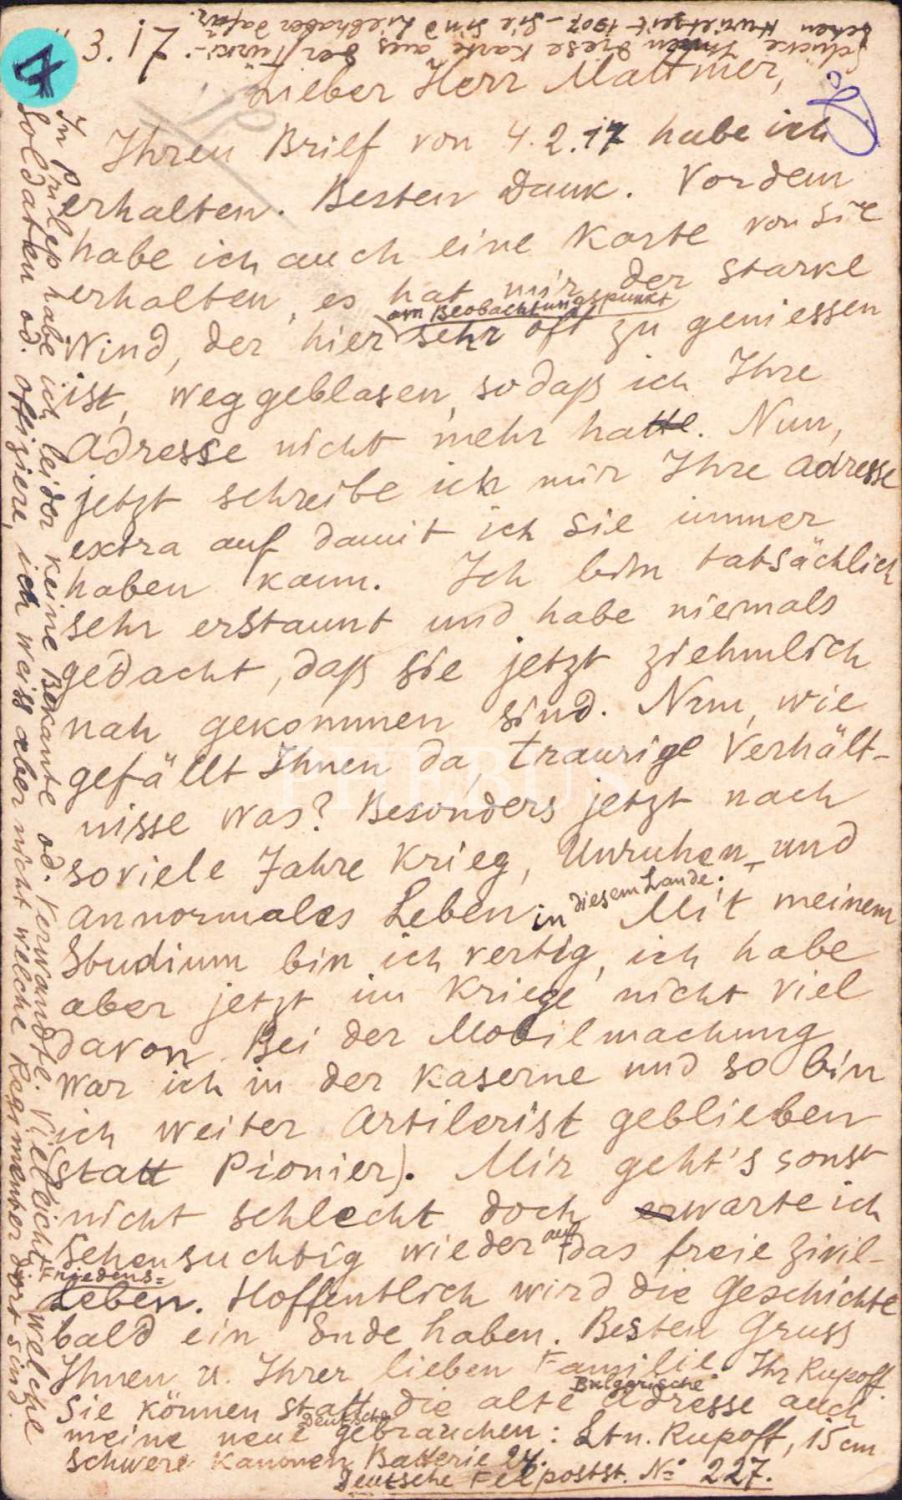 3. 17
Lieber Herr Mattmer,
Ihren Brief von 4.2.17 habe ich
erhalten. Besten Dank. Vordem
habe ich auch eine Karte von Sie
erhalten, es hat mir der starke
am Beobachtungspunkt
Wind, der hier sehr oft zu geniessen
ist, weggeblasen, sodaß ich Ihre
Adresse nicht mehr hatte. Nun,
jetzt schreibe ich mir Ihre Adresse
extra auf damit ich Sie immer
haben kann. Ich bin tatsächlich
sehr erstaunt und habe niemals
gedacht, daß Sie jetzt ziehmlich
nah gekommen sind. Nun, wie
gefällt Ihnen da, traurige Verhält-
nisse was? Besonders jetzt nach
soviele Jahre Krieg, Unruhen und
annormales Leben in diesem Lande. Mit meinem
Studium bin ich vertig, ich habe
aber jetzt im Kriege nicht viel
davon. Bei der Mobilmachung
war ich in der Kaserne und so bin
ich weiter Artilerist geblieben
(statt Pionier). Mir geht's sonst
nicht schlecht doch erwarte ich
sehensuchtig wieder auf das freie Zivil-
Friedens=
Leben. Hoffentlich wird die Geschichte
bald ein Ende haben. Besten Gruss
Ihnen u. Ihrer lieben Familie. Ihr Rupoff.
Bulgarische
Sie können statt die alte Adresse auch
deutsche
meine neue gebrauchen: Ltn. Rupoff, 15cm
schwere Kanonen Batterie 24.
Deutsche Felpostst. No 227.
In Prilep habe ich leider keine Bekante od. Verwandte. Vielleicht welche
Soldaten od. Offiziere, ich weiss aber nicht welche Regimenter dort sind.
Schicke Ihnen diese Karte aus der Türki-
schen Kurietzeit 1907 - Sie sind Liebhaber dafür.
PHEBUS